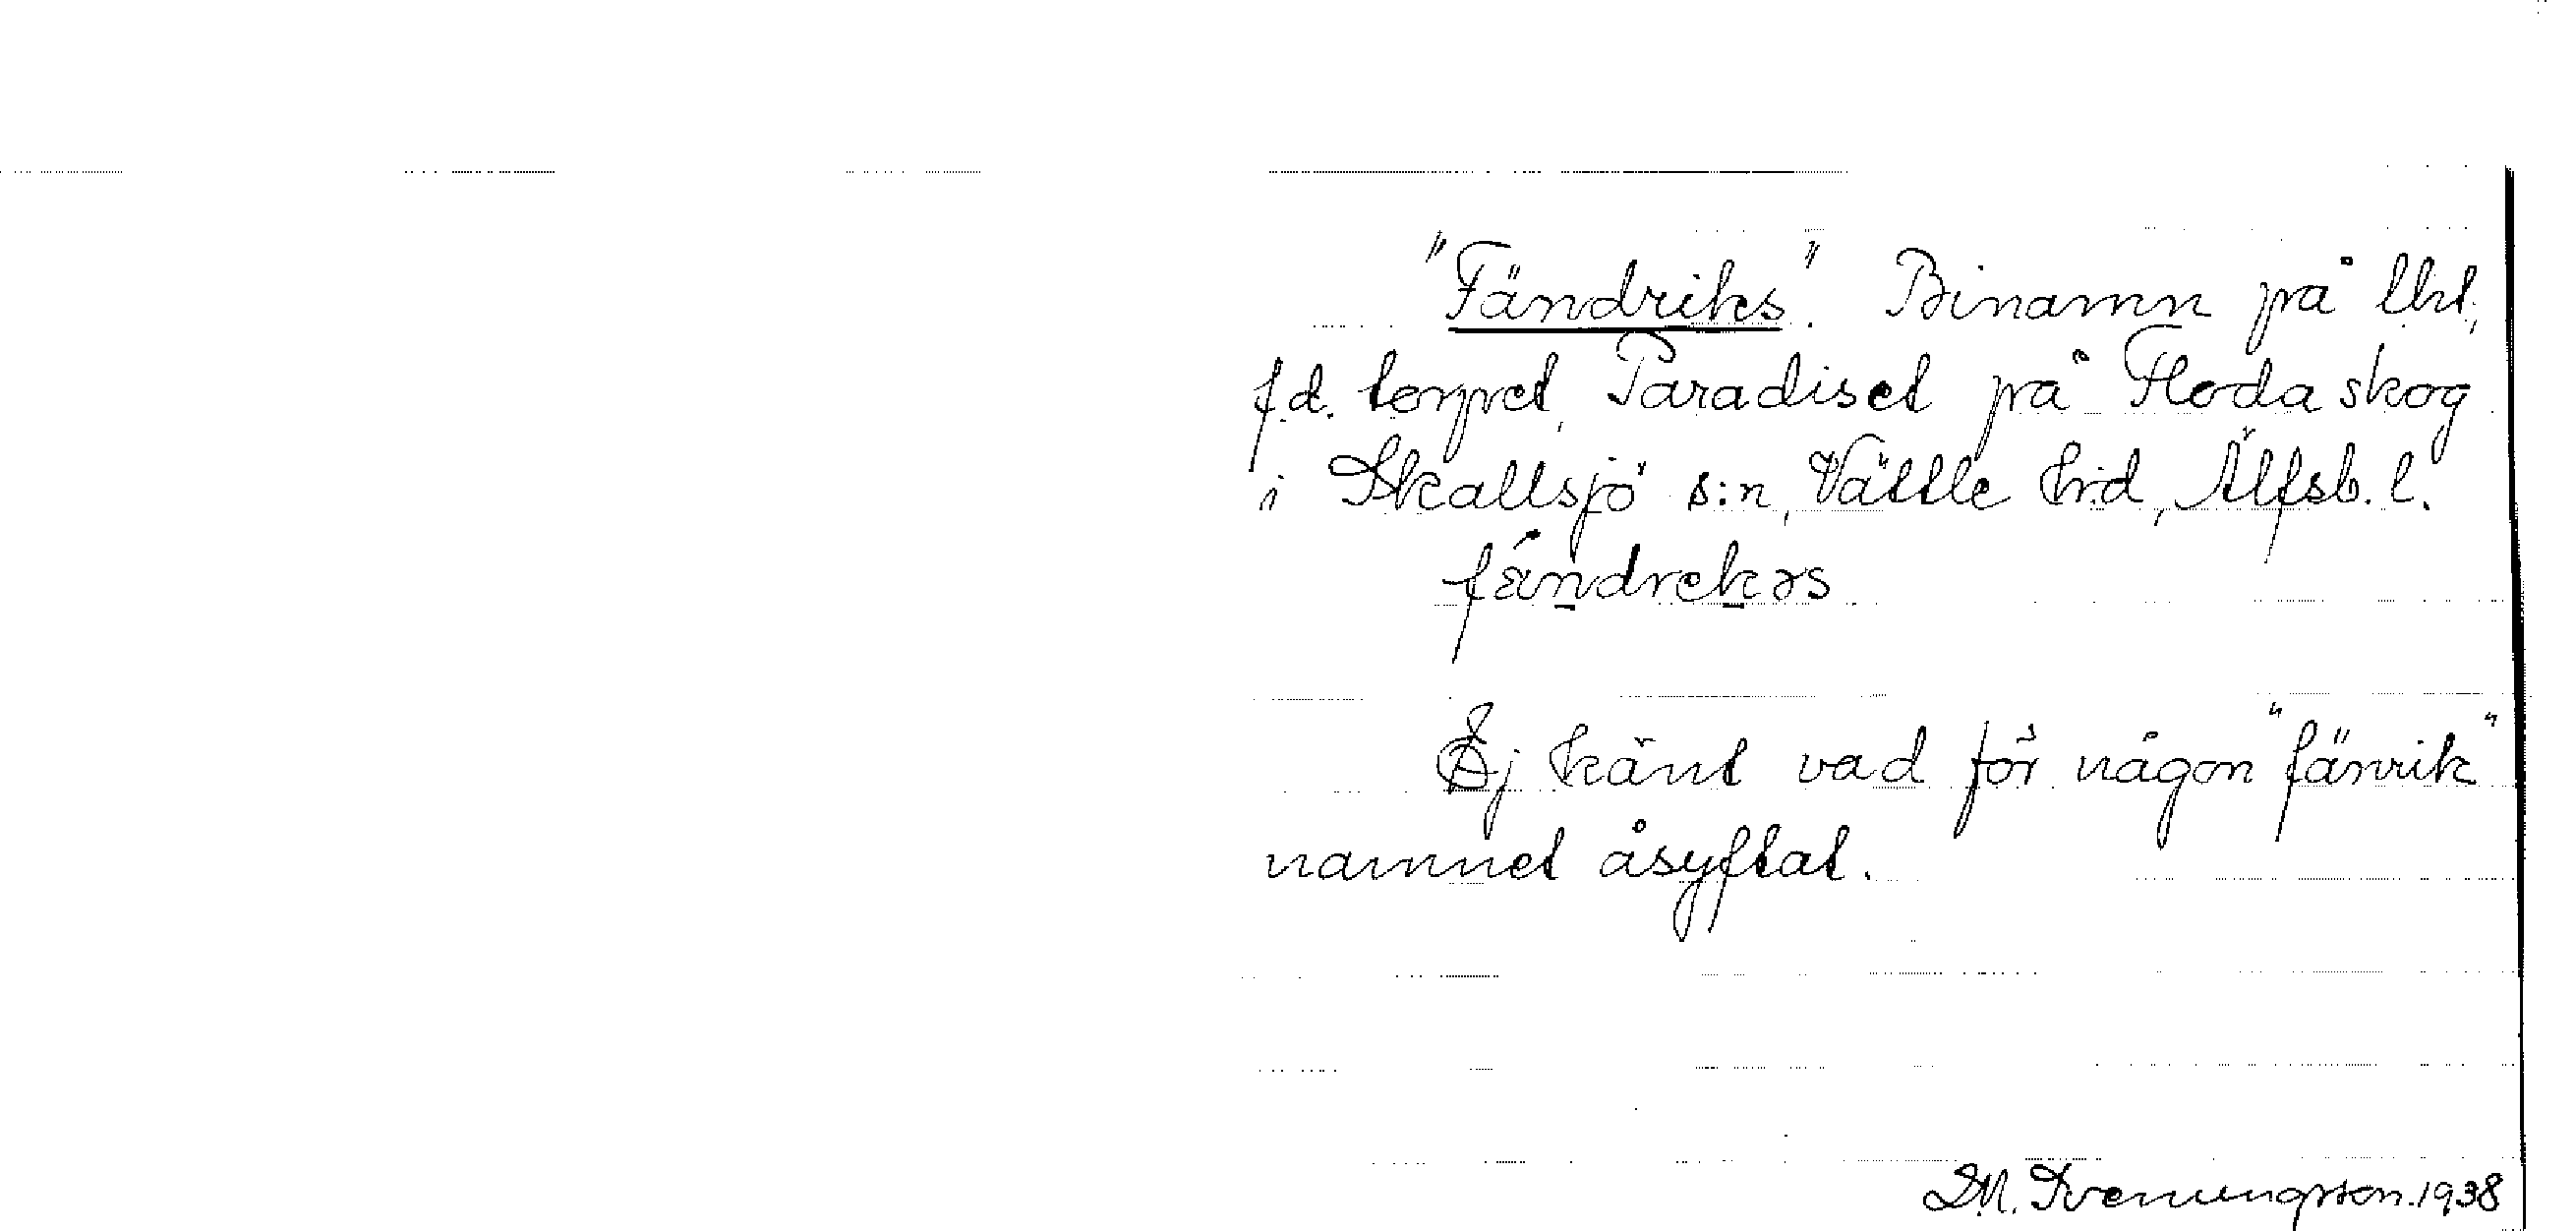 "Fändriks". Binamn på lht,
f.d. torpet, Paradiset på Floda skog
i Skallsjö s:n, Vättle hd, Älfsb. l.
fä́ndrekəs
Ej känt vad för någon "fänrik"
namnet åsyftat.
D.M. Svenungsson. 1938